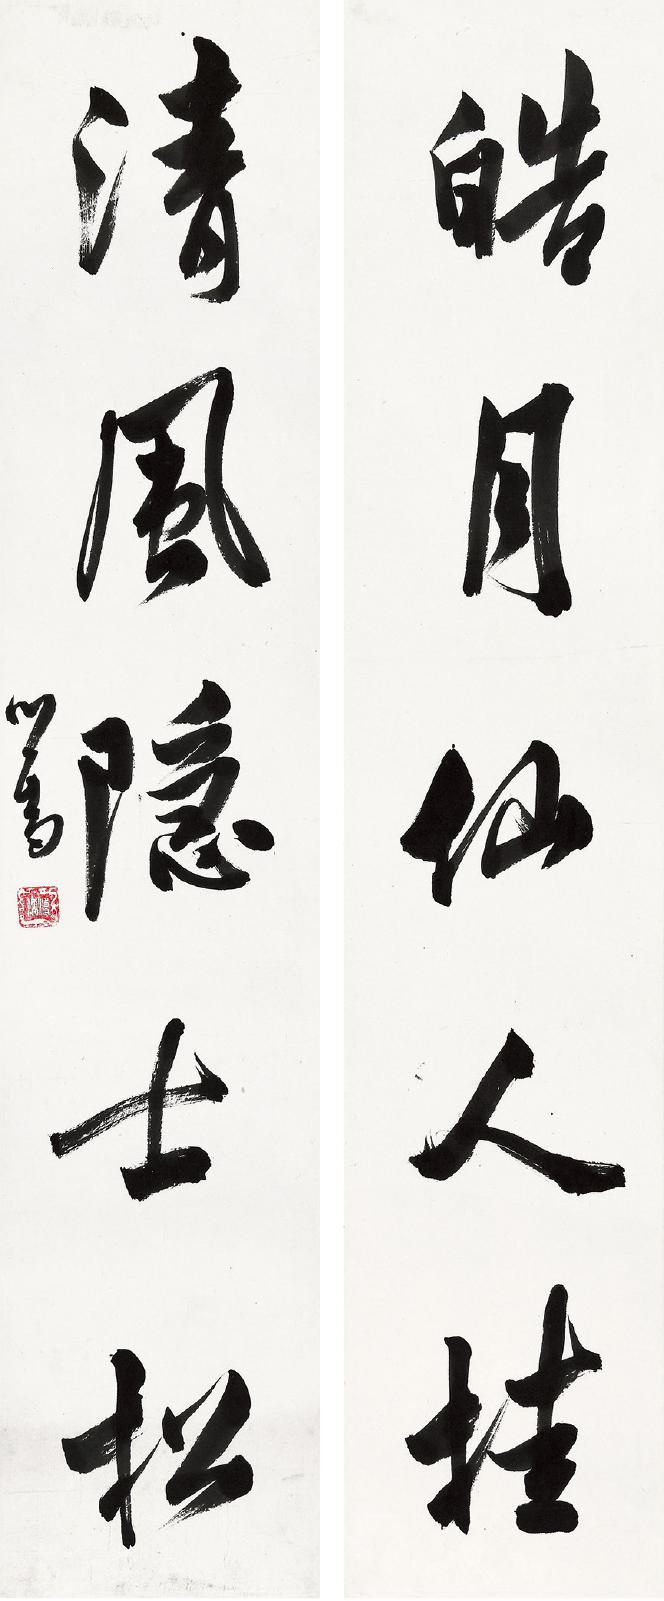 皓月仙人桂
清風隱士松
心畬